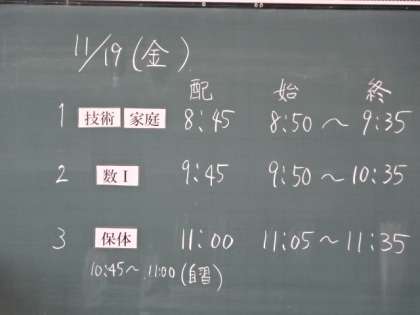 11/19(金)
配 始 終
1 技術 家庭 8:45 8:50～9:35
2 数I 9:45 9:50～10:35
3 保体 11:00 11:05～11:35
10:45～11:00(自習)